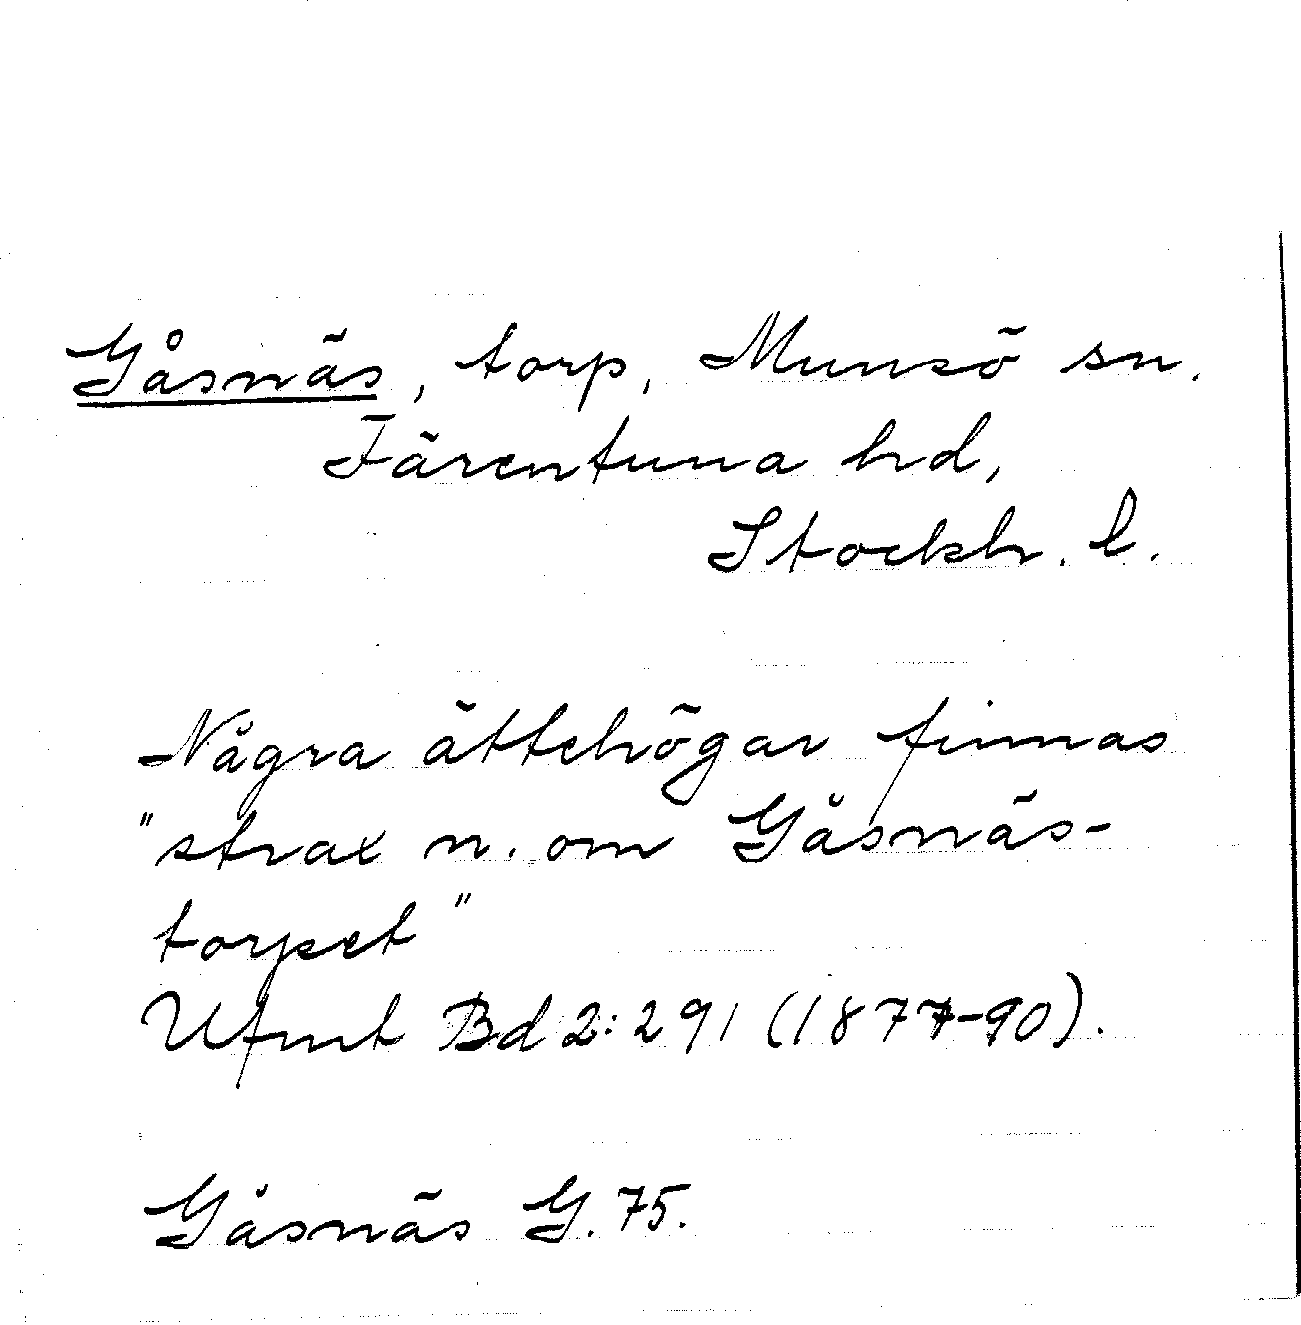 Gåsnäs, torp, Munsö sn.
Färentuna hd,
Stockh. l.
Några ättehögar finnas
"strax n. om Gåsnäs-
torpet"
Ufmt Bd 2:291 (1877-90).
Gåsnäs G. 75.